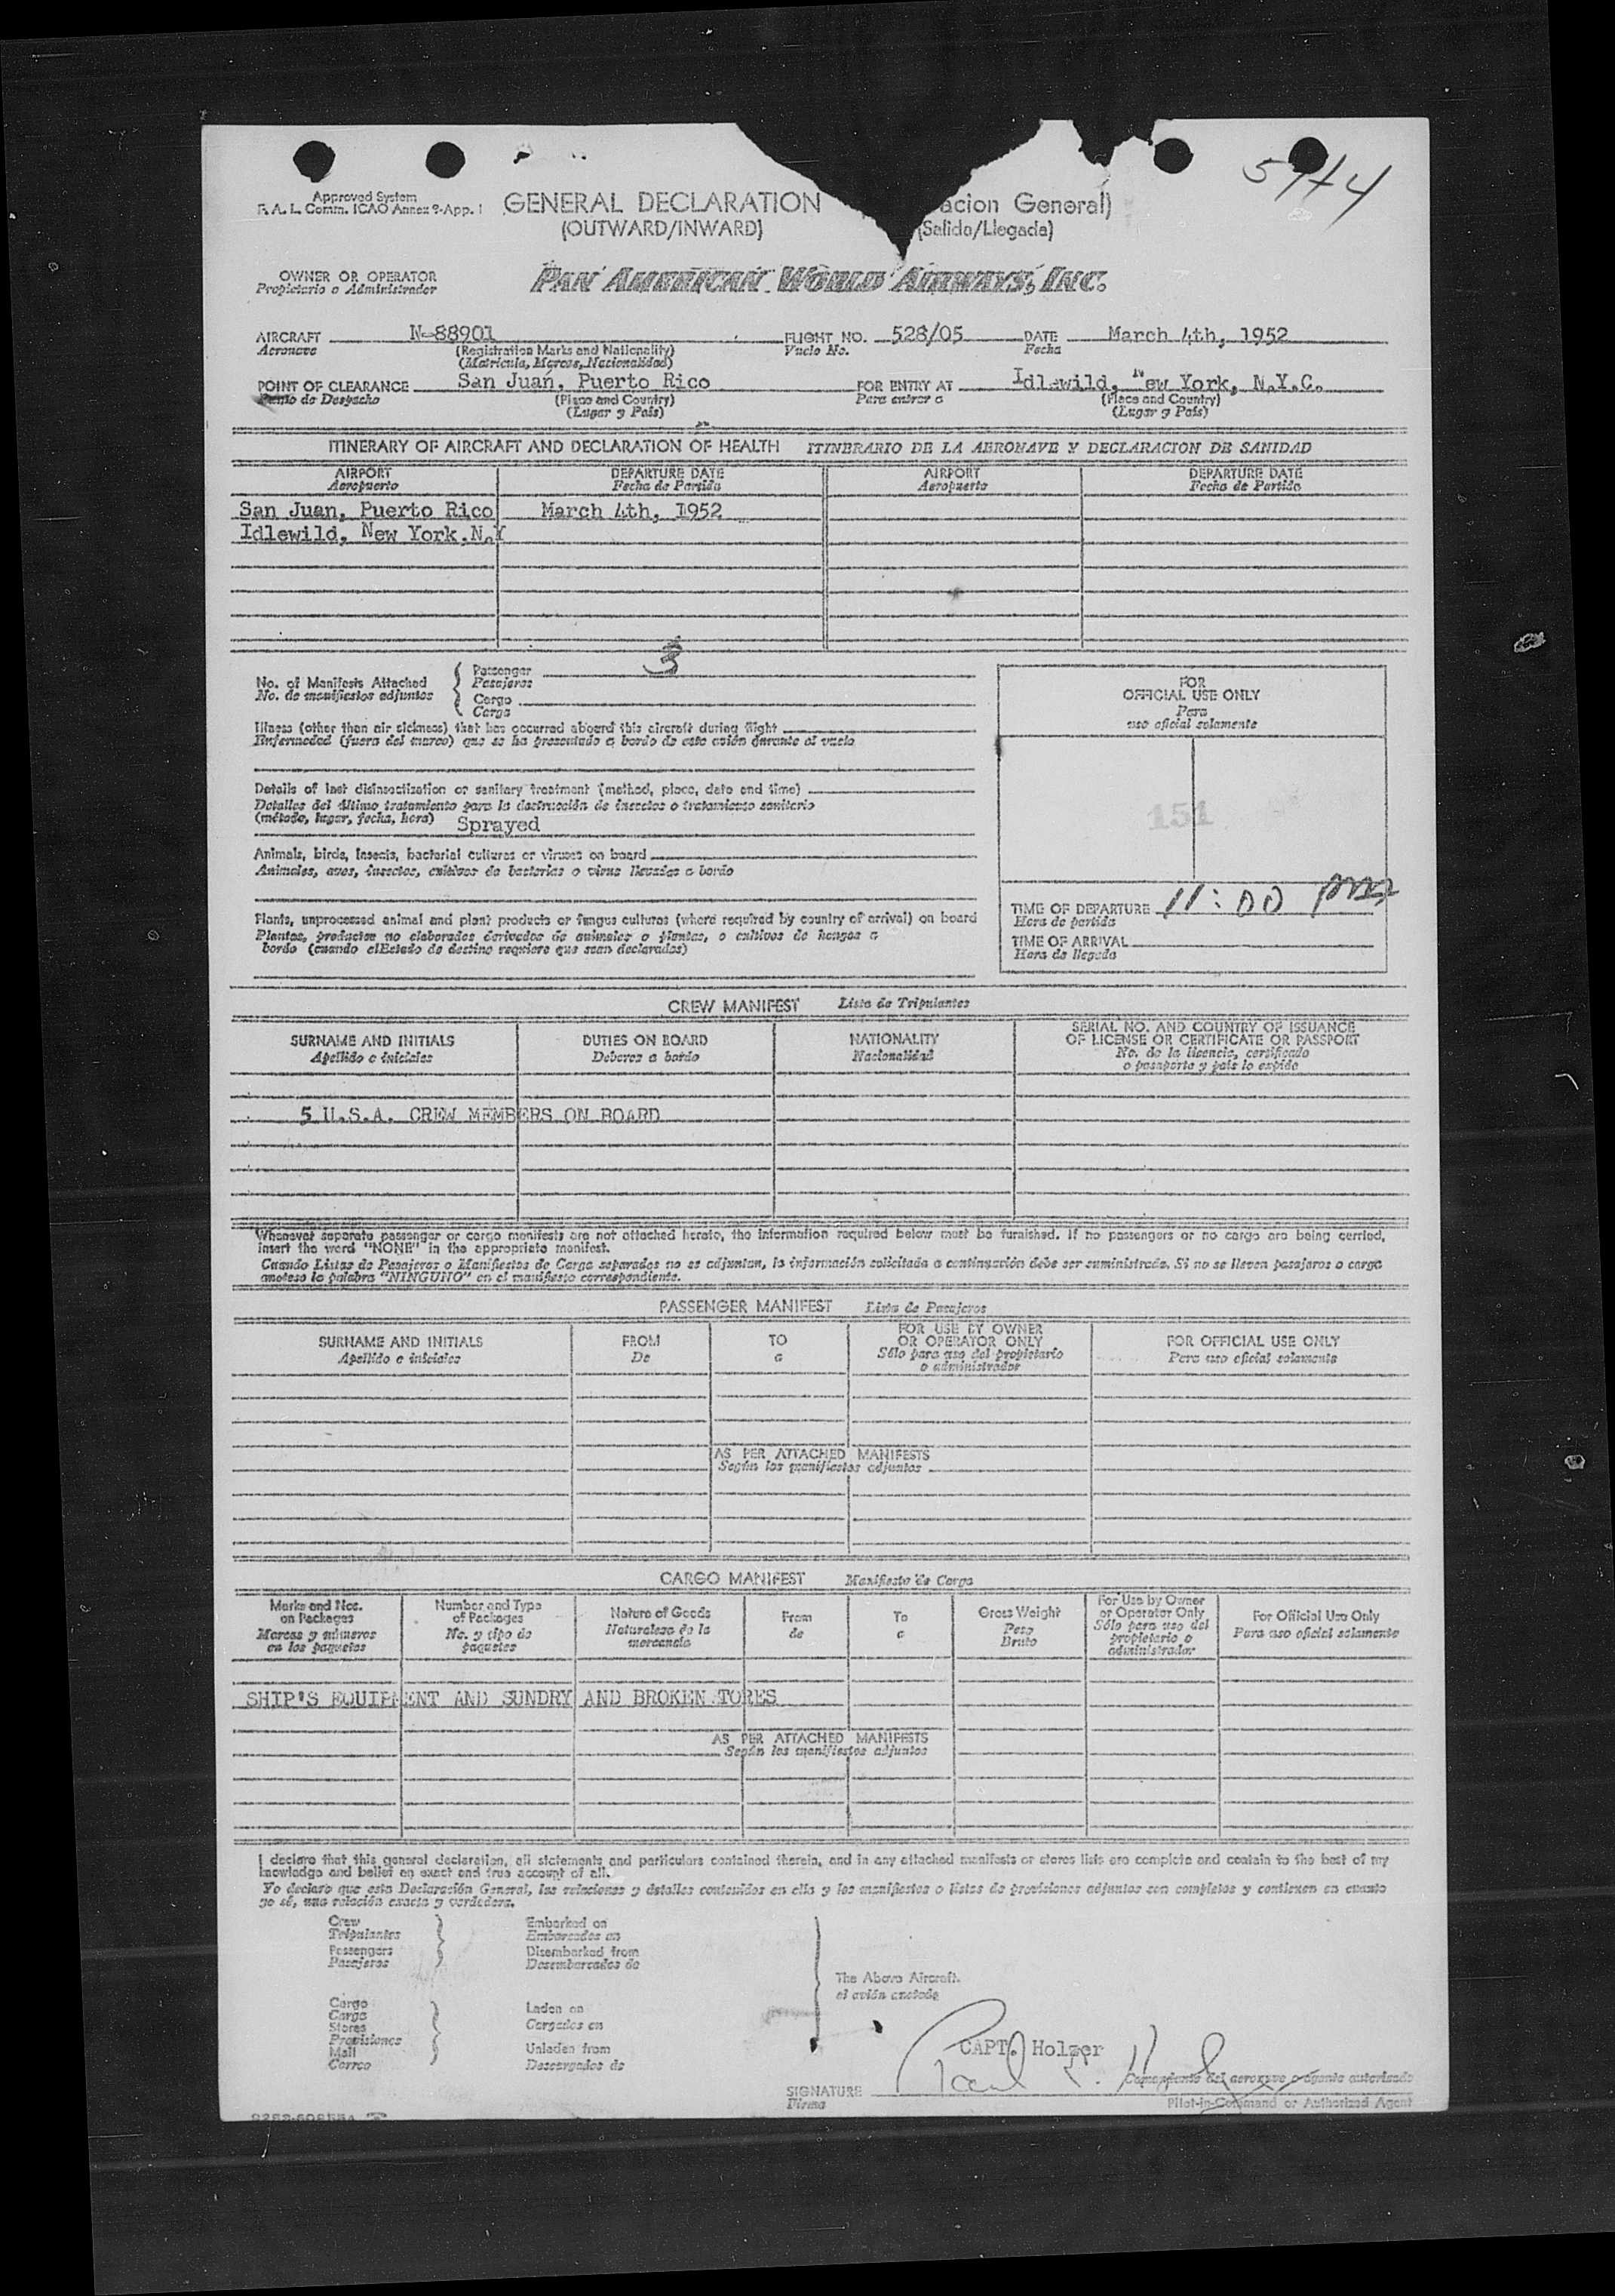 5/44
Approved System
F. A. L. Comm. ICAO Annex 9-App. 1
GENERAL DECLARATION
acion General)
(OUTWARD/INWARD)
(Salida/Llegada)
OWNER OR OPERATOR
Propietario o Administrador
PAN AMERICAN WORLD AIRWAYS, INC.
AIRCRAFT N-88901 FLIGHT NO. 528/05 DATE March 4th, 1952
Aeronave (Registration Marks and Nationality) Vuelo No. Fecha
(Matricula, Marcas, Nacionalidad)
POINT OF CLEARANCE San Juan, Puerto Rico FOR ENTRY AT Idlewild, New York, N.Y.C.
Punto de Despacho (Place and Country) Para entrar a (Place and Country)
(Lugar y País) (Lugar y País)
ITINERARY OF AIRCRAFT AND DECLARATION OF HEALTH ITINERARIO DE LA AERONAVE Y DECLARACION DE SANIDAD
AIRPORT DEPARTURE DATE AIRPORT DEPARTURE DATE
Aeropuerto Fecha de Partida Aeropuerto Fecha de Partida
San Juan, Puerto Rico March 4th, 1952
Idlewild, New York.N.Y
No. of Manifests Attached
No. de manifiestos adjuntos
Passenger 3
Pasajeros
Cargo
Carga
Illness (other than air sickness) that has occurred aboard this aircraft during flight
Enfermedad (fuera del mareo) que se ha presentado a bordo de este avión durante el vuelo
Details of last disinsectization or sanitary treatment (method, place, date and time)
Detalles del último tratamiento para la destrucción de insectos o tratamiento sanitario
(método, lugar, fecha, hora) Sprayed
Animals, birds, insects, bacterial cultures or viruses on board
Animales, aves, insectos, cultivos de bacterias o virus llevados a bordo
Plants, unprocessed animal and plant products or fungus cultures (where required by country of arrival) on board
Plantas, productos no elaborados derivados de animales o plantas, o cultivos de hongos a
bordo (cuando elEstado de destino requiere que sean declarados)
FOR
OFFICIAL USE ONLY
Para
uso oficial solamente
151
TIME OF DEPARTURE 11:00 pm
Hora de partida
TIME OF ARRIVAL
Hora de llegada
CREW MANIFEST Lista de Tripulantes
SURNAME AND INITIALS DUTIES ON BOARD NATIONALITY SERIAL NO. AND COUNTRY OF ISSUANCE
OF LICENSE OR CERTIFICATE OR PASSPORT
Apellido e iniciales Deberes a bordo Nacionalidad No. de la licencia, certificado
o pasaporte y país lo expide
5 U.S.A. CREW MEMBERS ON BOARD
Whenever separate passenger or cargo manifests are not attached hereto, the information required below must be furnished. If no passengers or no cargo are being carried,
insert the word "NONE" in the appropriate manifest.
Cuando Listas de Pasajeros o Manifiestos de Carga separados no se adjuntan, la información solicitada a continuación debe ser suministrada. Si no se llevan pasajeros o carga
anotese la palabra "NINGUNO" en el manifiesto correspondiente.
PASSENGER MANIFEST Lista de Pasajeros
SURNAME AND INITIALS FROM TO FOR USE BY OWNER
OR OPERATOR ONLY FOR OFFICIAL USE ONLY
Apellido e iniciales De a Sólo para uso del propietario
o administrador Para uso oficial solamente
AS PER ATTACHED MANIFESTS
Según los manifiestos adjuntos
CARGO MANIFEST Manifiesto de Carga
Marks and Nos.
on Packages
Marcas y números
en los paquetes
Number and Type
of Packages
No. y tipo de
paquetes
Nature of Goods
Naturaleza de la
mercancía
From
de
To
a
Gross Weight
Peso
Bruto
For Use by Owner
or Operator Only
Sólo para uso del
propietario o
administrador
For Official Use Only
Para uso oficial solamente
SHIP'S EQUIPMENT AND SUNDRY AND BROKEN TORES
AS PER ATTACHED MANIFESTS
Según los manifiestos adjuntos
I declare that this general declaration, all statements and particulars contained therein, and in any attached manifests or stores lists are complete and contain to the best of my
knowledge and belief an exact and true account of all.
Yo declaro que esta Declaración General, las relaciones y detalles contenidos en ella y los manifiestos o listas de provisiones adjuntos son completos y contienen en cuanto
yo sé, una relación exacta y verdadera.
Crew
Tripulantes
Passengers
Pasajeros
Embarked on
Embarcados en
Disembarked from
Desembarcados de
The Above Aircraft.
el avión anotado
Cargo
Carga
Stores
Provisiones
Mail
Correo
Laden on
Cargados en
Unladen from
Descargados de
CAPT. Holzer
Comandante del aeronave o agente autorizado
SIGNATURE
Firma
Pilot-in-Command or Authorized Agent